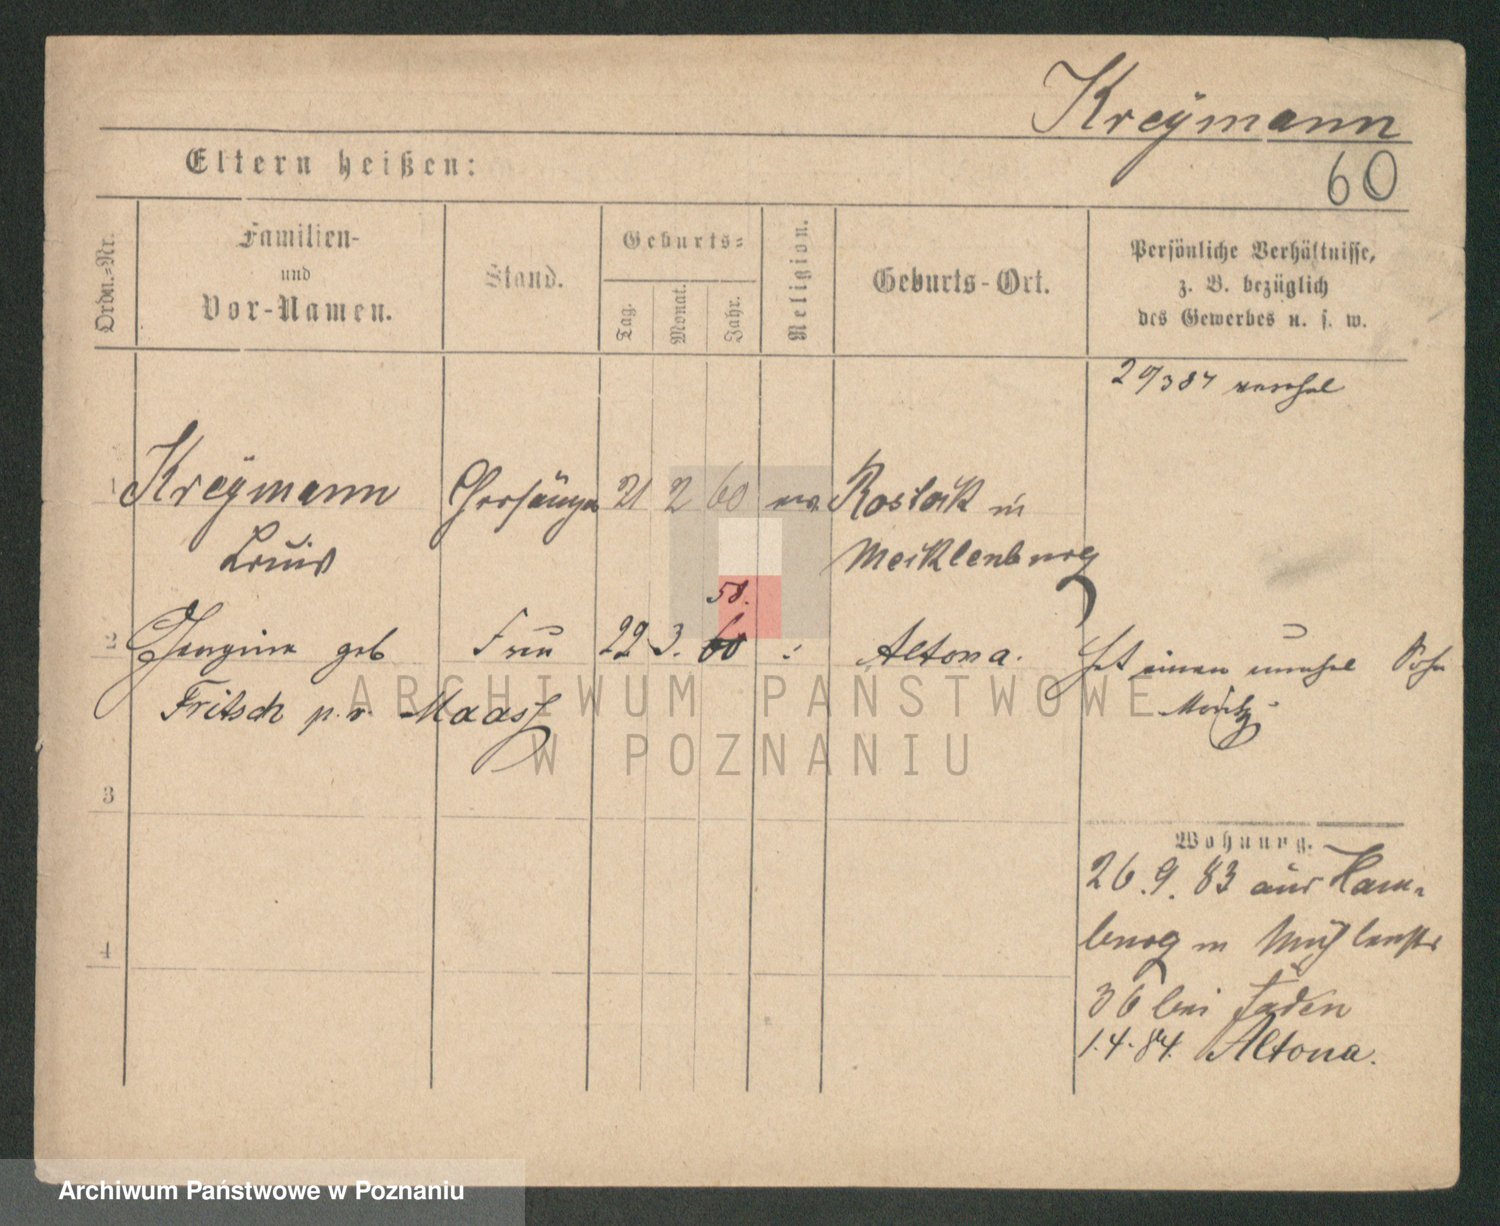 Kreÿmann
60
Eltern heißen:
Ordn.-Nr.
Familien-
und
Vor-Namen.
Stand.
Geburts-
Tag.
Monat.
Jahr.
Religion.
Geburts-Ort.
Persönliche Verhältnisse,
z. B. bezüglich
des Gewerbes u. s. w.
1 Kreÿmann 21 2 60 Rostock in
Louis Mecklenburg
58.
2 geb Frau 22 3. 60 Altona. Hat einen unehel Sohn
Fritsch Maass Moritz
3
Wohnung.
26.9.83 aus Ham-
burg n Mühlenstr
4
36 bei Faden
1.4.84. Altona.
ARCHIWUM PAŃSTWOWE
W POZNANIU
Archiwum Państwowe w Poznaniu